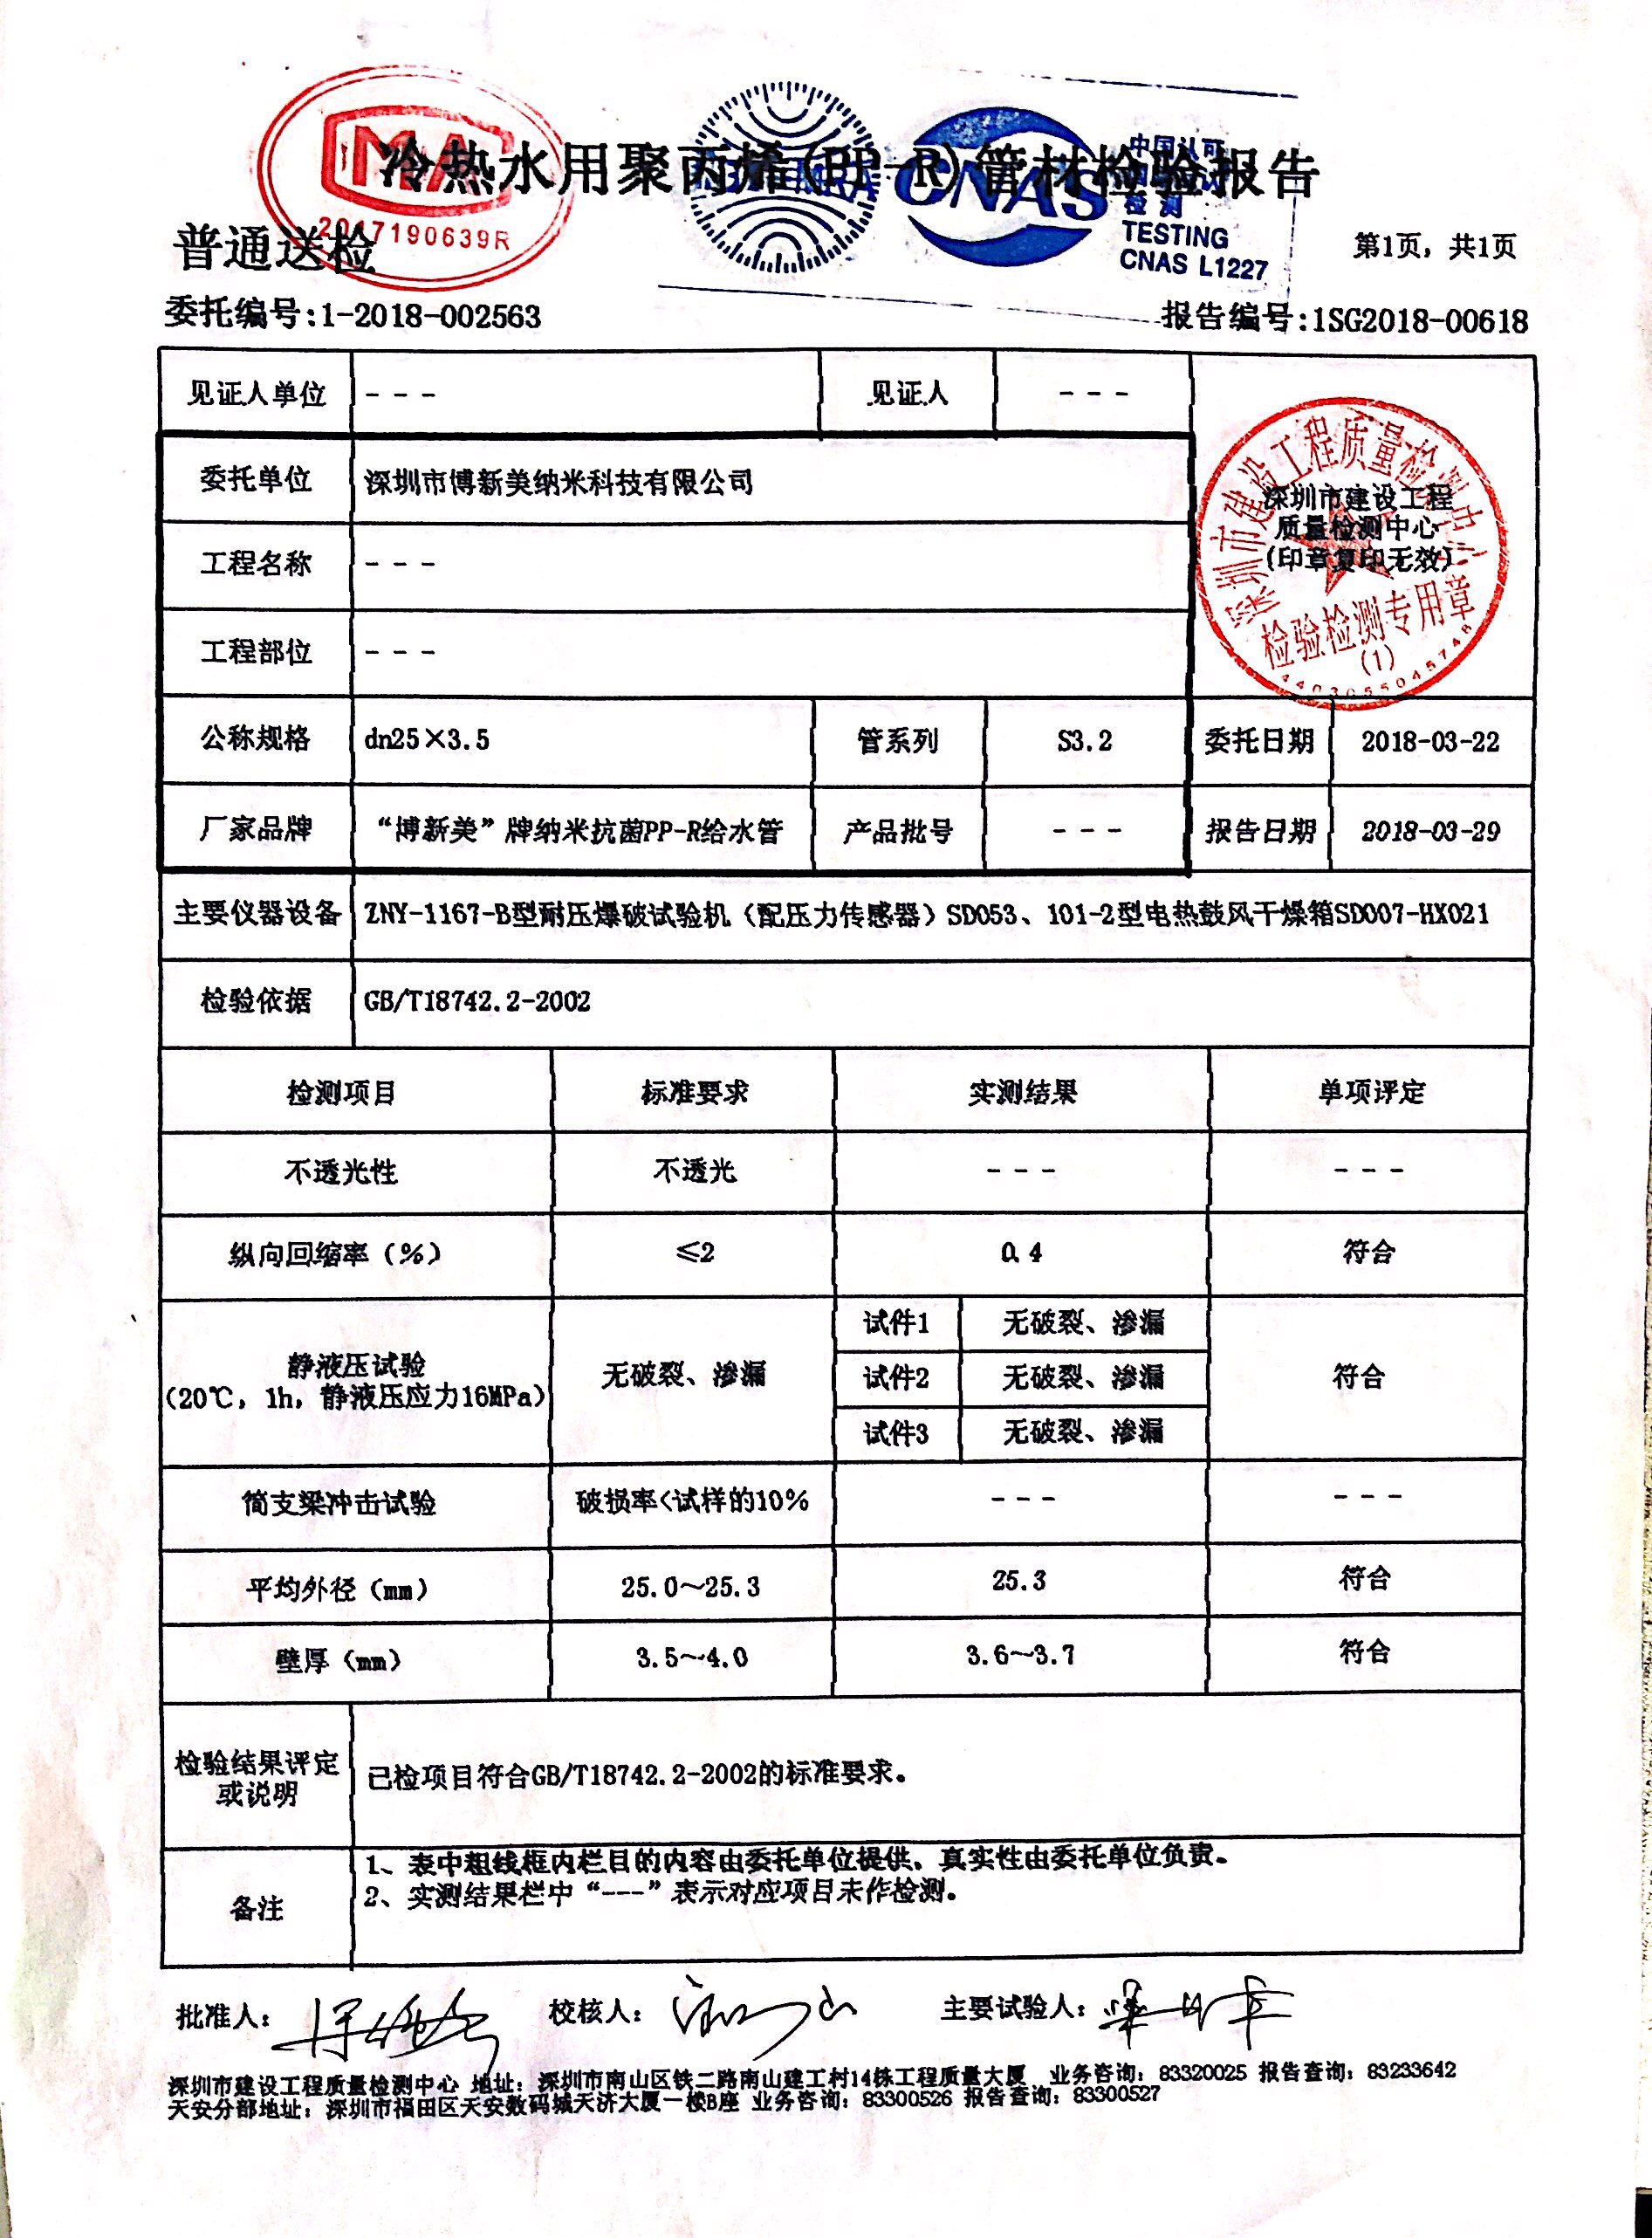 冷热水用聚丙烯(PP-R)管材检验报告
MA
2017190639R
CNAS
中国认可
检测
TESTING
CNAS L1227
普通送检
第1页，共1页
委托编号:1-2018-002563
报告编号:1SG2018-00618
见证人单位 --- 见证人 ---
委托单位 深圳市博新美纳米科技有限公司
深圳市建设工程质量检测中心
深圳市建设工程
质量检测中心
(印章复印无效)
检验检测专用章
(1)
4403055045748
工程名称 ---
工程部位 ---
公称规格 dn25×3.5 管系列 S3.2 委托日期 2018-03-22
厂家品牌 “博新美”牌纳米抗菌PP-R给水管 产品批号 --- 报告日期 2018-03-29
主要仪器设备 ZNY-1167-B型耐压爆破试验机（配压力传感器）SD053、101-2型电热鼓风干燥箱SD007-HX021
检验依据 GB/T18742.2-2002
检测项目 标准要求 实测结果 单项评定
不透光性 不透光 --- ---
纵向回缩率（%） ≤2 0.4 符合
试件1 无破裂、渗漏
静液压试验
（20℃，1h，静液压应力16MPa） 无破裂、渗漏 试件2 无破裂、渗漏 符合
试件3 无破裂、渗漏
简支梁冲击试验 破损率<试样的10% --- ---
平均外径（mm） 25.0～25.3 25.3 符合
壁厚（mm） 3.5～4.0 3.6～3.7 符合
检验结果评定
或说明
已检项目符合GB/T18742.2-2002的标准要求。
备注
1、表中粗线框内栏目的内容由委托单位提供，真实性由委托单位负责。
2、实测结果栏中“---”表示对应项目未作检测。
批准人： 校核人： 主要试验人：
深圳市建设工程质量检测中心 地址：深圳市南山区铁二路南山建工村14栋工程质量大厦 业务咨询：83320025 报告查询：83233642
天安分部地址：深圳市福田区天安数码城天济大厦一楼B座 业务咨询：83300526 报告查询：83300527